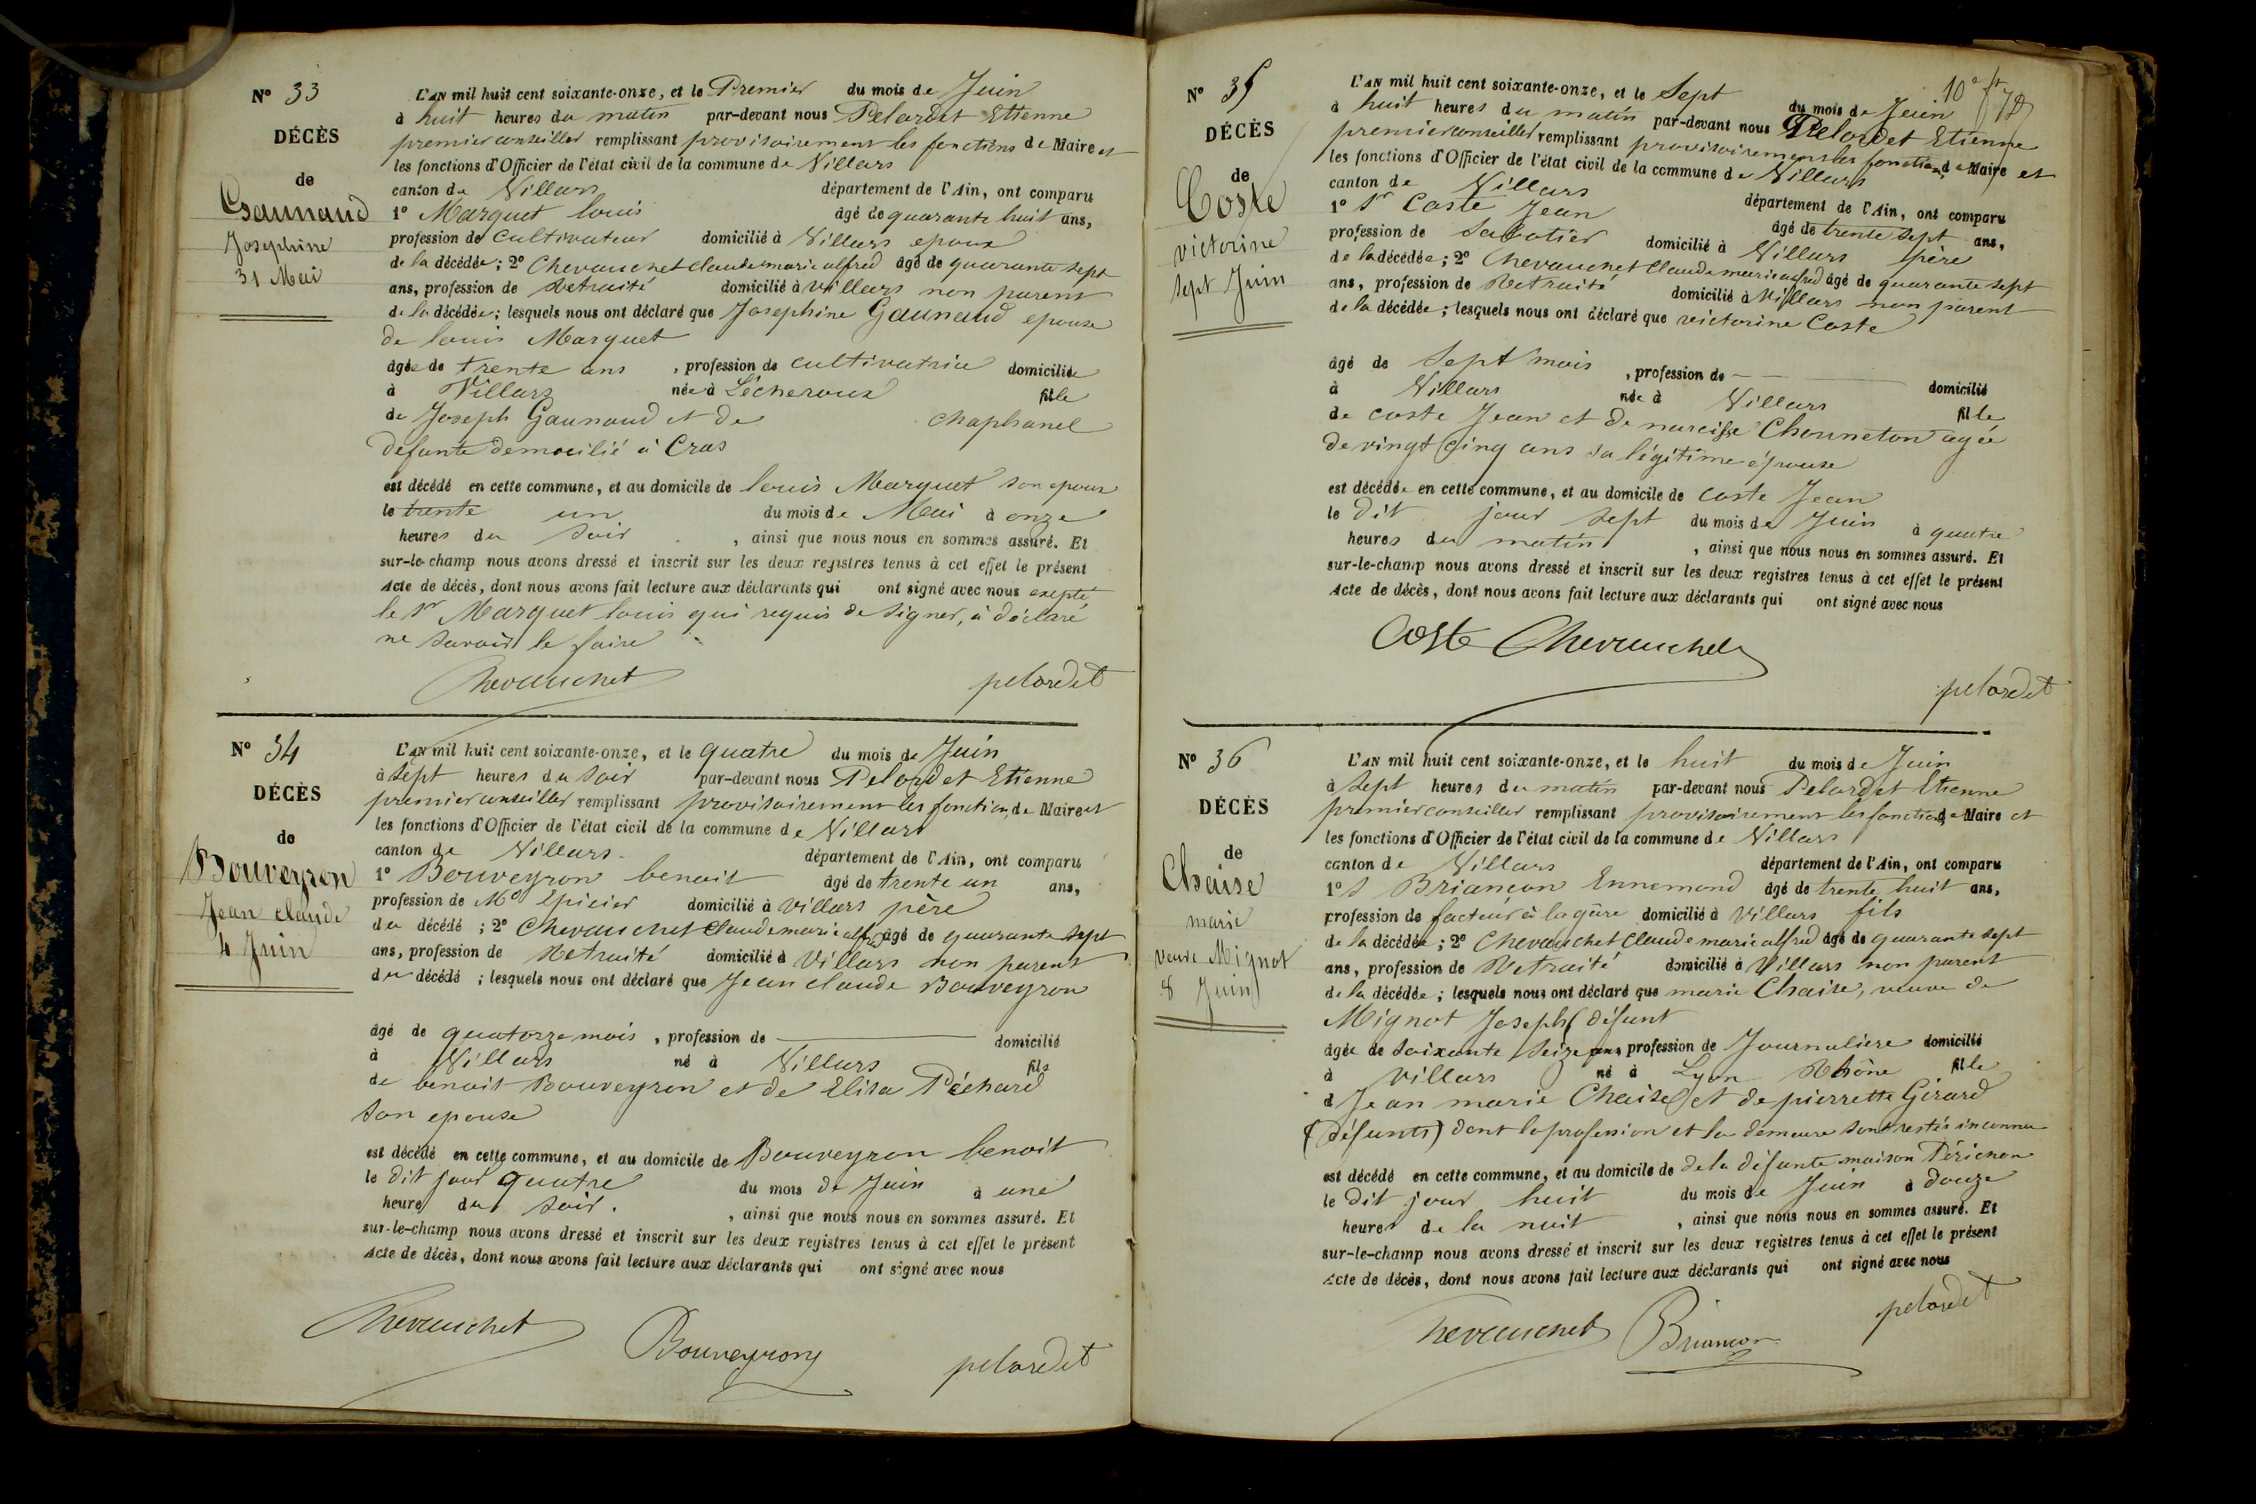 N° 33
DÉCÈS
de
Gaunaud
Josephine
31 Mai
L'AN mil huit cent soixante-onze, et le Premier du mois de Juin
à huit heures du matin par-devant nous Pelardet Etienne
premier conseiller remplissant provisoirement les fonctions de Maire et
les fonctions d'Officier de l'état civil de la commune de Villars
canton de Villars département de l'Ain, ont comparu
1° Marquet louis âgé de quarante huit ans,
profession de cultivateur domicilié à Villars epoux
de la décédée; 2° Chevauchet claude marie alfred âgé de quarante sept
ans, profession de Retraité domicilié à Villars non parent
de la décédée; lesquels nous ont déclaré que Josephine Gaunaud epouse
de louis Marquet
âgée de trente ans, profession de cultivatrice domiciliée
à Villars née à Lécheroux fille
de Joseph Gaunaud et de chaphanel
defunte demoicilié à Cras
est décédé en cette commune, et au domicile de louis Marquet son epoux
le trente un du mois de Mai à onze
heures du soir, ainsi que nous nous en sommes assuré. Et
sur-le-champ nous avons dressé et inscrit sur les deux registres tenus à cet effet le présent
Acte de décès, dont nous avons fait lecture aux déclarants qui ont signé avec nous exepté
le Sr Marquet louis qui requis de signer, à déclaré
ne savoir le faire
Chevauchet pelardet
N° 34
DÉCÈS
de
Bouveyron
Jean claude
4 Juin
L'AN mil huit cent soixante-onze, et le quatre du mois de Juin
à sept heures du soir par-devant nous Pelardet Etienne
premier conseiller remplissant provisoirement les fonction, de Maire et
les fonctions d'Officier de l'état civil de la commune de Villars
canton de Villars département de l'Ain, ont comparu
1° Bouveyron benoit âgé de trente un ans,
profession de Md épicier domicilié à Villars père
du décédé; 2° Chevauchet Claude marie alfred âgé de quarante sept
ans, profession de Retraité domicilié à Villars non parent
du décédé; lesquels nous ont déclaré que Jean claude Bouveyron
âgé de quatorze mois, profession de domicilié
à Villars né à Villars fils
de benoit Bouveyron et de Elisa Péchard
son epouse
est décédé en cette commune, et au domicile de Bouveyron benoit
le dit jour quatre du mois de Juin à une
heure du soir., ainsi que nous nous en sommes assuré. Et
sur-le-champ nous avons dressé et inscrit sur les deux registres tenus à cet effet le présent
Acte de décès, dont nous avons fait lecture aux déclarants qui ont signé avec nous
Chevauchet Bouveyron pelardet
10e
N° 35
DÉCÈS
de
Coste
victorine
sept Juin
L'AN mil huit cent soixante-onze, et le Sept du mois de Juin
à huit heures du matin par-devant nous Pelardet Etienne
premier conseiller remplissant provisoirement les fonction, de Maire et
les fonctions d'Officier de l'état civil de la commune de Villars
canton de Villars département de l'Ain, ont comparu
1° Sr Coste Jean âgé de trente sept ans,
profession de Sabotier domicilié à Villars père
de la décédée; 2° Chevauchet Claude marie alfred âgé de quarante sept
ans, profession de Retraité domicilié à Villars non parent
de la décédée; lesquels nous ont déclaré que victorine Coste
âgé de Sept mois, profession de domicilié
à Villars née à Villars fille
de coste Jean et de narcisse Chouneton agée
de vingt cinq ans sa légitime épouse
est décédée en cette commune, et au domicile de coste Jean
le dit jour sept du mois de Juin à quatre
heures du matin, ainsi que nous nous en sommes assuré. Et
sur-le-champ nous avons dressé et inscrit sur les deux registres tenus à cet effet le présent
Acte de décès, dont nous avons fait lecture aux déclarants qui ont signé avec nous
Coste Chevauchet
pelardet
N° 36
DÉCÈS
de
Chaise
marie
veuve Mignot
8 Juin
L'AN mil huit cent soixante-onze, et le huit du mois de Juin
à sept heures du matin par-devant nous Pelardet Etienne
premier conseiller remplissant provisoirement les fonction, de Maire et
les fonctions d'Officier de l'état civil de la commune de Villars
canton de Villars département de l'Ain, ont comparu
1° S Briancon Ennemond âgé de trente huit ans,
profession de facteur à la gare domicilié à Villars fils
de la décédée; 2° Chevauchet Claude marie alfred âgé de quarante sept
ans, profession de Retraité domicilié à Villars non parent
de la décédée; lesquels nous ont déclaré que marie Chaise, veuve de
Mignot Joseph défunt
âgée de soixante seize ans profession de Journalière domicilié
à Villars né à Lyon Rhône fille
d Jean marie Chaise et de pierrette Girard
(défunts) dont la profession et la demeure sont restés inconnu
est décédé en cette commune, et au domicile de de la défunte maison Périchon
le dit jour huit du mois de Juin à douze
heures de la nuit, ainsi que nous nous en sommes assuré. Et
sur-le-champ nous avons dressé et inscrit sur les deux registres tenus à cet effet le présent
Acte de décès, dont nous avons fait lecture aux déclarants qui ont signé avec nous
Chevauchet Briancon pelardet